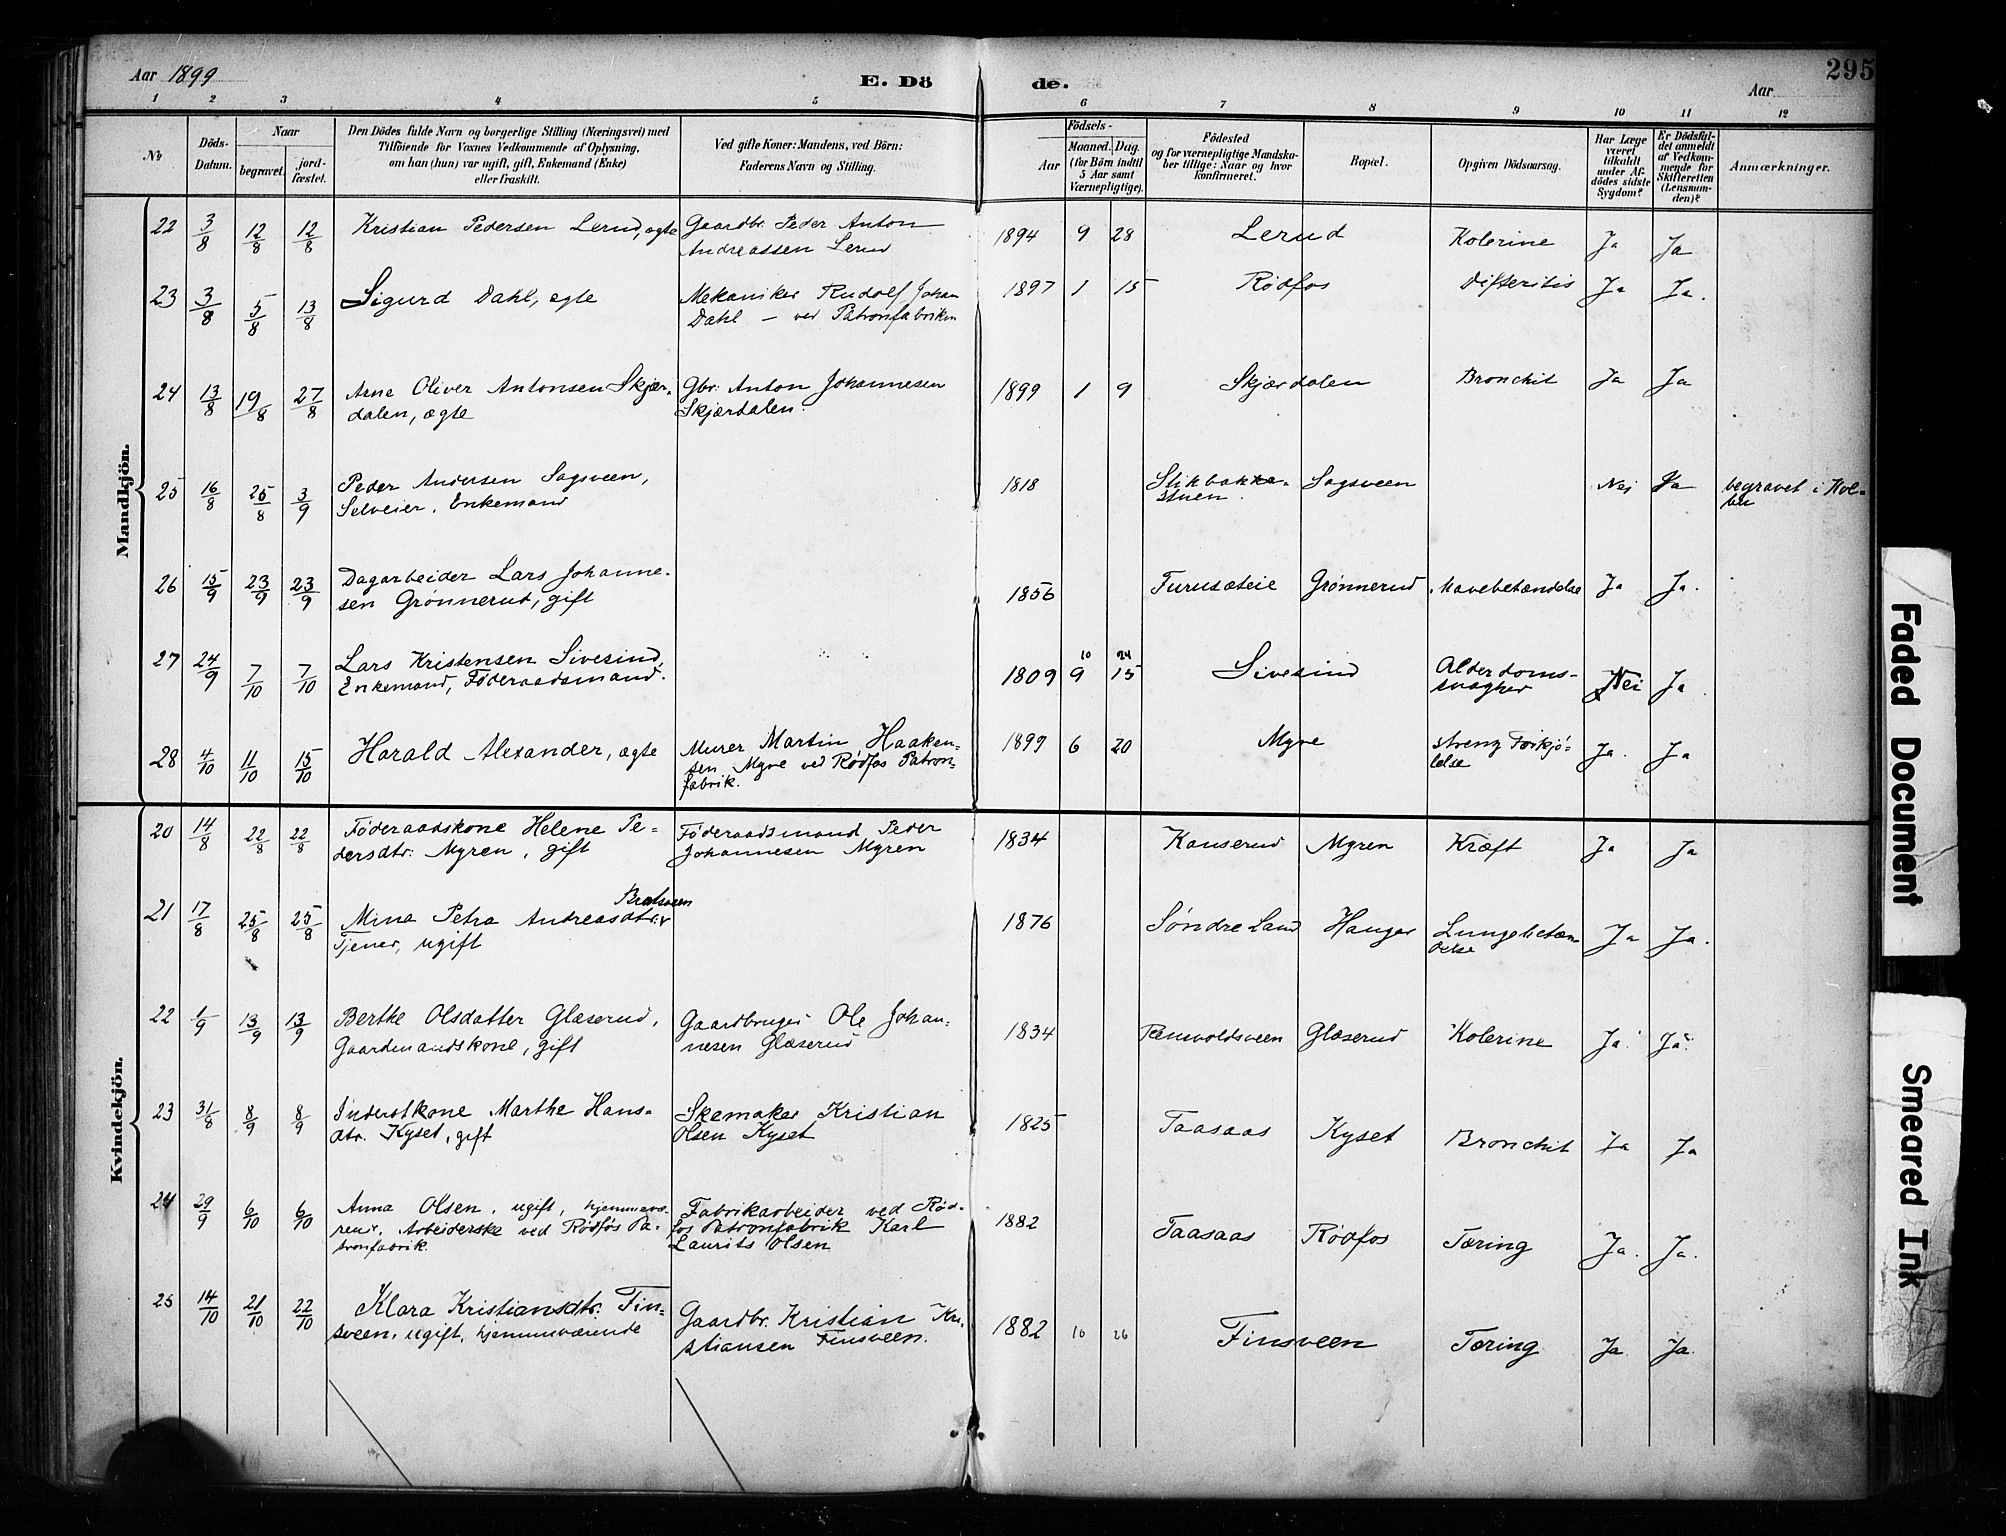 Aar 1899
E. Dö
de.
Aar
295
1 2 3 4 5 6 7 8 9 10 11 12
No.
Döds-
Datum.
Naar
begravet.
jord-
fæstet.
Den Dödes fulde Navn og borgerlige Stilling (Næringsvei) med
Tilföiende for Voxnes Vedkommende af Oplysning,
om han (hun) var ugift, gift, Enkemand (Enke)
eller fraskilt.
Ved gifte Koner: Mandens, ved Börn:
Faderens Navn og Stilling.
Födsels-
Aar
Maaned. Dag.
(for Börn indtil
5 Aar samt
Værnepligtige).
Födested
og for værnepligtige Mandska-
ber tillige: Naar og hvor
konfirmeret.
Bopæl.
Opgiven Dödsaarsag.
Har Læge
været
tilkaldt
under Af-
dödes sidste
Sygdom?
Er Dödsfal-
det anmeldt
af Vedkom-
mende for
Skifteretten
(Lensman-
den)?
Anmærkninger.
Mandkjön.
22 3/8 12/8 12/8 Kristian Pedersen Lerud, ægte Gaardbr. Peder Anton 1894 9 28 Lerud Kolerine Ja Ja
Andreassen Lerud
23 3/8 5/8 13/8 Sigurd Dahl, ægte Mekaniker Rudolf Johan 1897 1 15 Rødfos Difteritis Ja Ja.
Dahl — ved Patronfabriken
24 13/8 19/8 27/8 Arne Oliver Antonsen Skjær- Gbr. Anton Johannesen 1899 1 9 Skjærdalen Bronchit Ja Ja
dalen, ægte Skjærdalen.
25 16/8 25/8 3/9 Peder Andersen Sagsveen, 1818 Stikbakke- Sagsveen Nei Ja begravet i Kol-
Selveier, Enkemand stuen. bu
26 15/9 23/9 23/9 Dagarbeider Lars Johanne- 1856 Furusæteie Grønnerud Mavebetændelse Ja Ja.
sen Grønnerud, gift
27 24/9 7/10 7/10 Lars Kristensen Sivesind, 1809 9 15 Sivesind Alderdoms- Nei Ja
10 24
Enkemand, Føderaadsmand. svaghed
28 4/10 11/10 15/10 Harald Alexander, ægte Murer Martin Haaken- 1899 6 20 Myre streng Forkjø- Ja. Ja
sen Myre ved Rødfos Patron- lelse
fabrik.
Kvindekjön.
20 14/8 22/8 22/8 Føderaadskone Helene Pe- Føderaadsmand Peder 1834 Kanserud Myren Kræft Ja Ja
dersdtr. Myren, gift Johannesen Myren
Bratsveen
21 17/8 25/8 25/8 Mina Petra Andreasdtr. 1876 Søndre Land Hauger Lungebetæn- Ja Ja.
Tjener, ugift delse
22 1/9 13/9 13/9 Berthe Olsdatter Glæserud, Gaardbruger Ole Johan- 1834 Glæserud Kolerine Ja Ja
Gaardmandskone, gift nesen Glæserud
23 31/8 8/9 8/9 Inderstkone Marthe Hans- Skomaker Kristian 1825 Taasaas Kyset Bronchit Ja Ja
dtr. Kyset, gift Olsen Kyset
24 29/9 6/10 6/10 Anna Olsen, ugift, hjemmevæ- Fabrikarbeider ved Rød- 1882 Taasaas Rødfos Tæring Ja. Ja.
rende, Arbeiderske ved Rødfos Pa- fos Patronfabrik Karl
tronfabrik. Laurits Olsen
25 14/10 21/10 22/10 Klara Kristiansdtr. Fin- Gaardbr. Kristian Kri- 1882 10 26 Finsveen Tæring Ja. Ja.
sveen, ugift, hjemmeværende stiansen Finsveen.
Faded Document
Smeared Ink